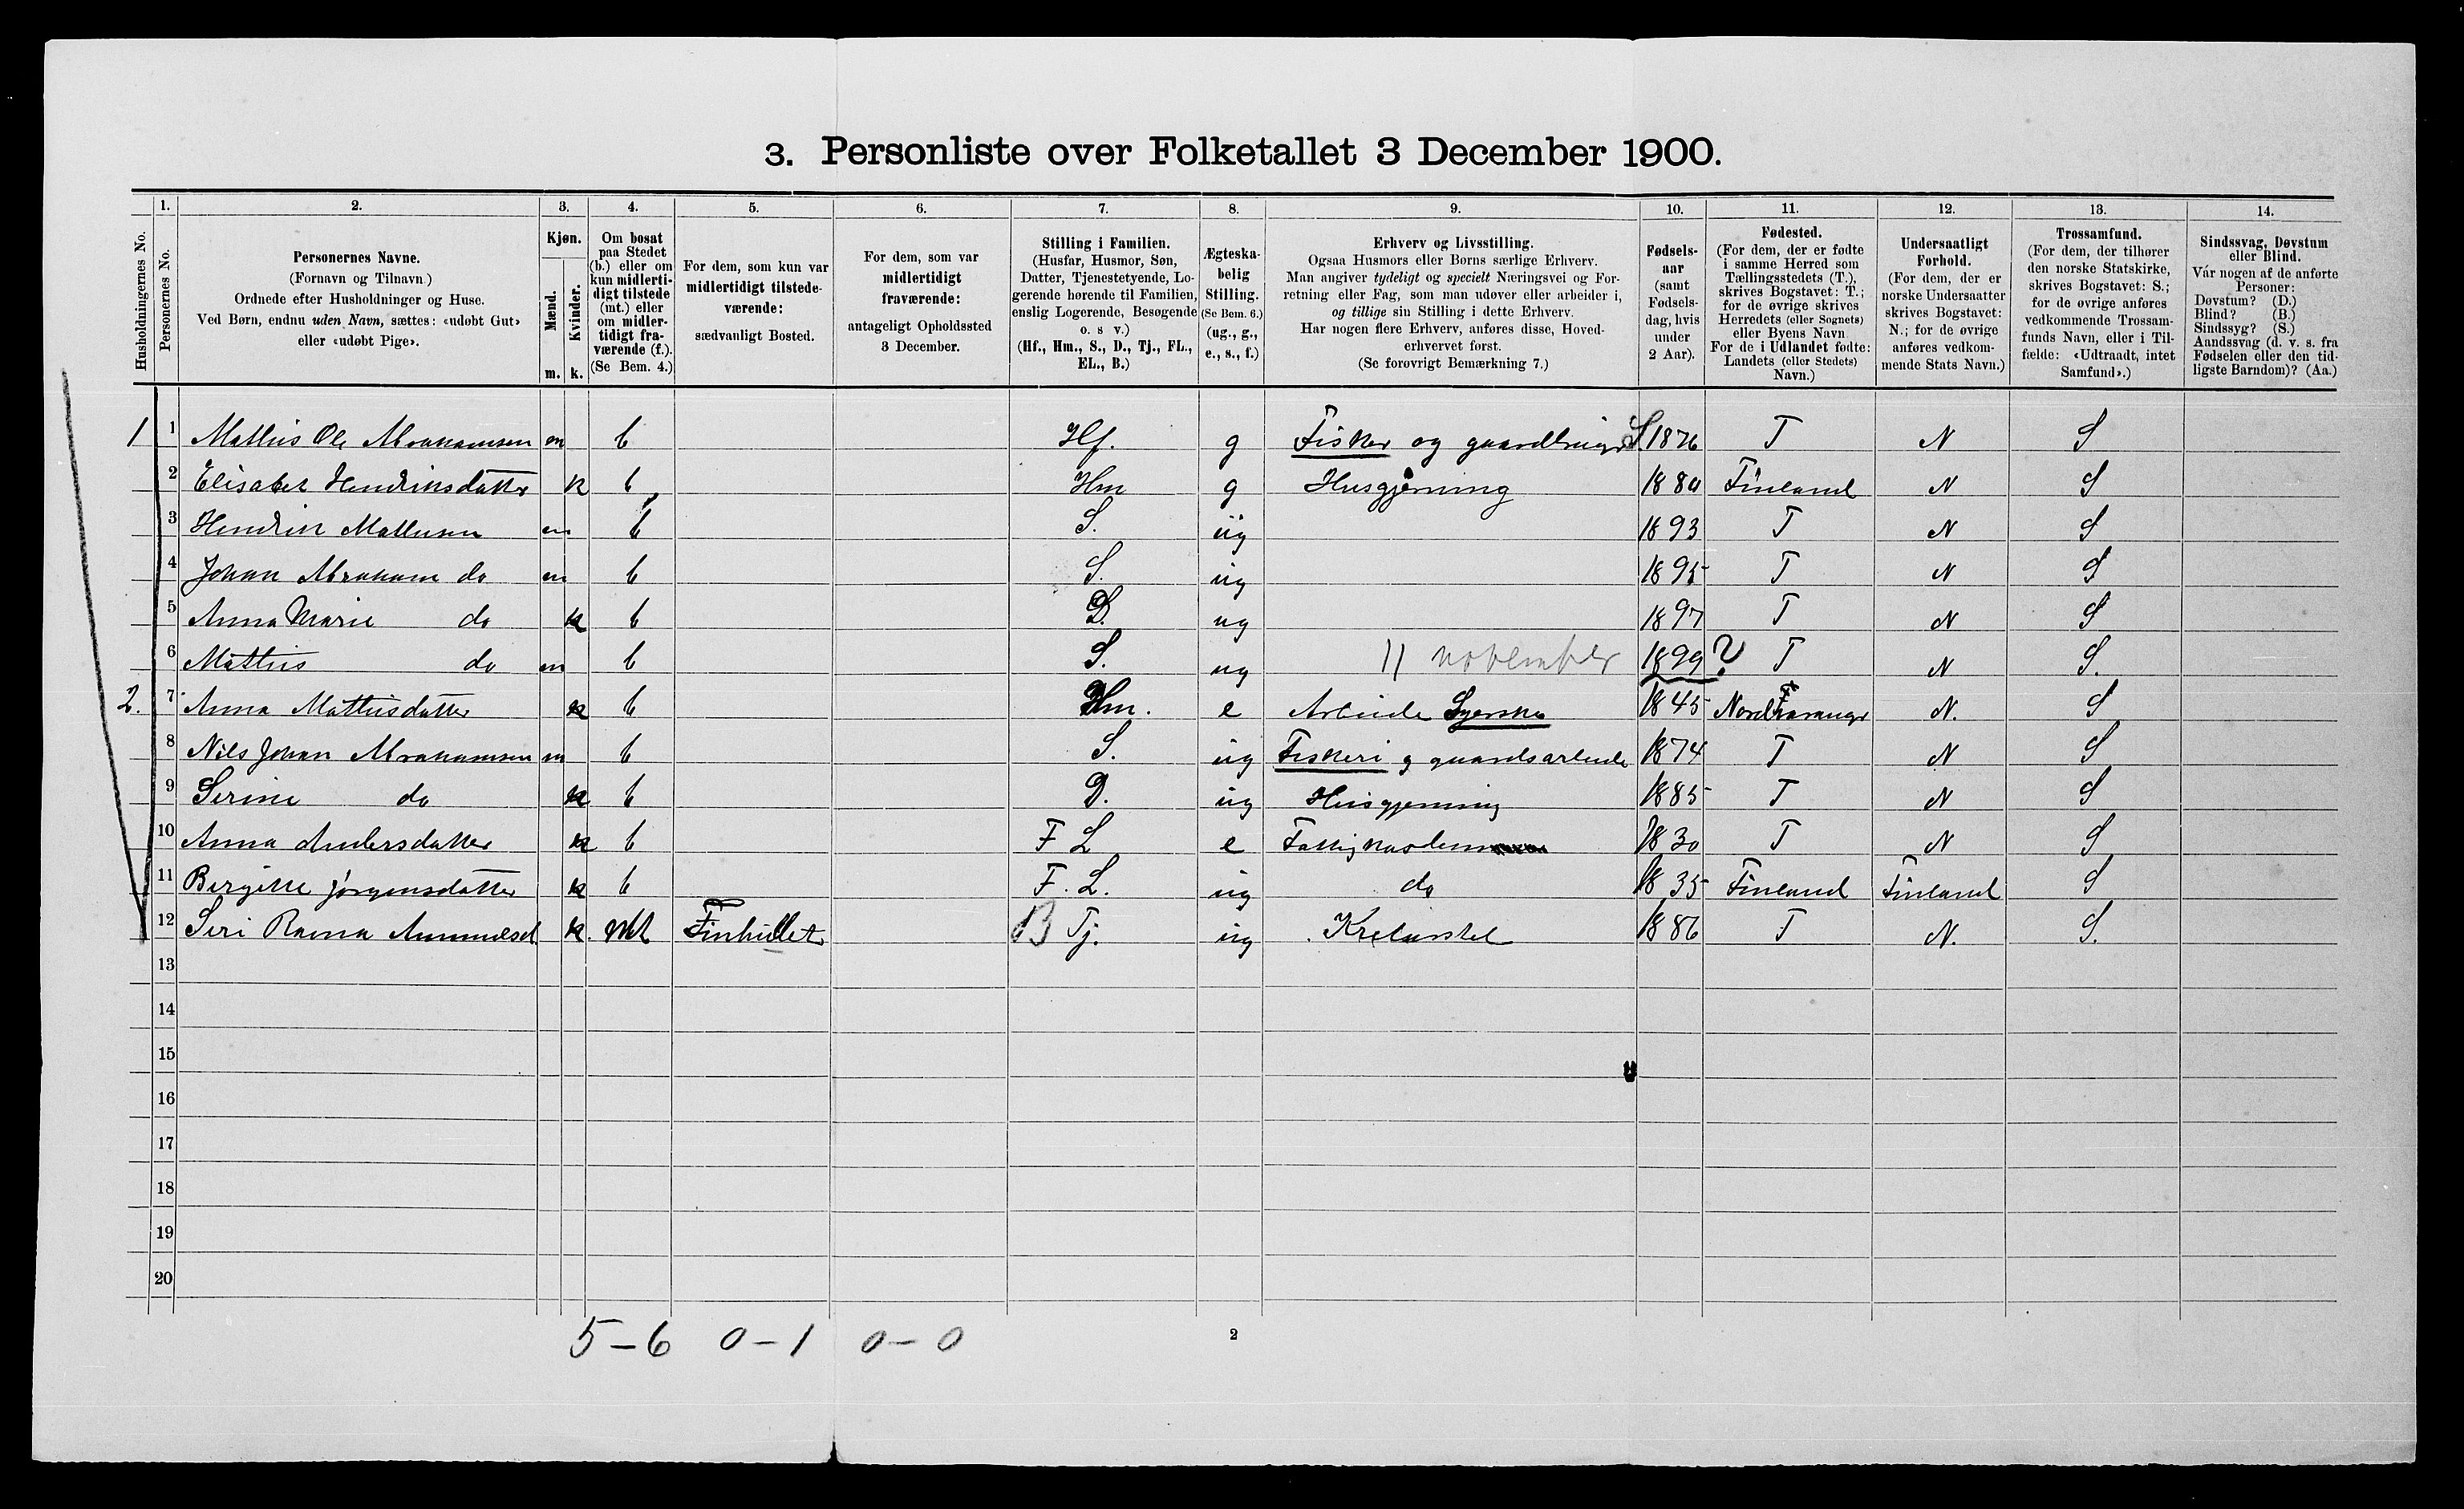 3. Personliste over Folketallet 3 December 1900.
1. 2. 3. 4. 5. 6. 7. 8. 9. 10. 11. 12. 13. 14.
Husholdningernes No.
Personernes No.
Personernes Navne.
(Fornavn og Tilnavn)
Ordnede efter Husholdninger og Huse.
Ved Børn, endnu uden Navn, sættes: «udøbt Gut»
eller «udøbt Pige».
Kjøn.
Mænd.
Kvinder.
m. k.
Om bosat
paa Stedet
(b.) eller om
kun midlerti-
digt tilstede
(mt.) eller
om midler-
tidigt fra-
værende (f.).
(Se Bem. 4.)
For dem, som kun var
midlertidigt tilstede-
værende:
sædvanligt Bosted.
For dem, som var
midlertidigt
fraværende:
antageligt Opholdssted
3 December.
Stilling i Familien.
(Husfar, Husmor, Søn,
Datter, Tjenestetyende, Lo-
gerende hørende til Familien,
enslig Logerende, Besøgende
o. s v.)
(Hf., Hm., S., D., Tj., FL.,
EL., B.)
Ægteska-
belig
Stilling.
(Se Bem. 6.)
(ug., g.,
e., s., f.)
Erhverv og Livsstilling.
Ogsaa Husmors eller Børns særlige Erhverv.
Man angiver tydeligt og specielt Næringsvei og For-
retning eller Fag, som man udøver eller arbeider i,
og tillige sin Stilling i dette Erhverv.
Har nogen flere Erhverv, anføres disse, Hoved-
erhvervet først.
(Se forøvrigt Bemærkning 7.)
Fødsels-
aar
(samt
Fødsels-
dag, hvis
under
2 Aar).
Fødested.
(For dem, der er fødte
i samme Herred som
Tællingsstedets (T.),
skrives Bogstavet: T.;
for de øvrige skrives
Herredets (eller Sognets)
eller Byens Navn
For de i Udlandet fødte:
Landets (eller Stedets)
Navn.)
Undersaatligt
Forhold.
(For dem, der er
norske Undersaatter
skrives Bogstavet:
N.; for de øvrige
anføres vedkom-
mende Stats Navn.)
Trossamfund.
(For dem, der tilhører
den norske Statskirke,
skrives Bogstavet: S.;
for de øvrige anføres
vedkommende Trossam-
funds Navn, eller i Til-
fælde: «Udtraadt, intet
Samfund».)
Sindssvag, Døvstum
eller Blind.
Var nogen af de anførte
Personer:
Døvstum? (D.)
Blind? (B.)
Sindssyg? (S.)
Aandssvag (d. v. s. fra
Fødselen eller den tid-
ligste Barndom)? (Aa.)
1 1 Mathis Ole Abrahamsen m b Hf. g Fisker og gaardbruger S 1876 T N S
2 Elisabet Hendriksdatter k b Hm g Husgjerning Finland N S
3 Hendrik Mathisen m b S. ug 1893 T N S
4 Johan Abraham do m b S. ug 1895 T N S
5 Anna Marie do k b D. ug 1897 T N S
6 Mathis do m b S. ug 11 november 1899 ? T N S.
2. 7 Anna Mathisdatter k b Hm. e Arbeide Syerske 1845 N. S
8 Nils Johan Abrahamsen m b S. ug Fiskeri g gaardsarbeide 1874 T N S
9 Serine do k b D. ug Husgjerning 1885 T N S
10 Anna Andersdatter k b F L e 1830 T N S
11 Birgitte Jørgensdatter k b F. L. ug do 1835 Finland Finland S
12 Siri Ravna k. Mt B Tj. ug 1886 T N. S.
13
14
15
16
17
18
19
20
5 – 6 0 – 1 0 – 0
2